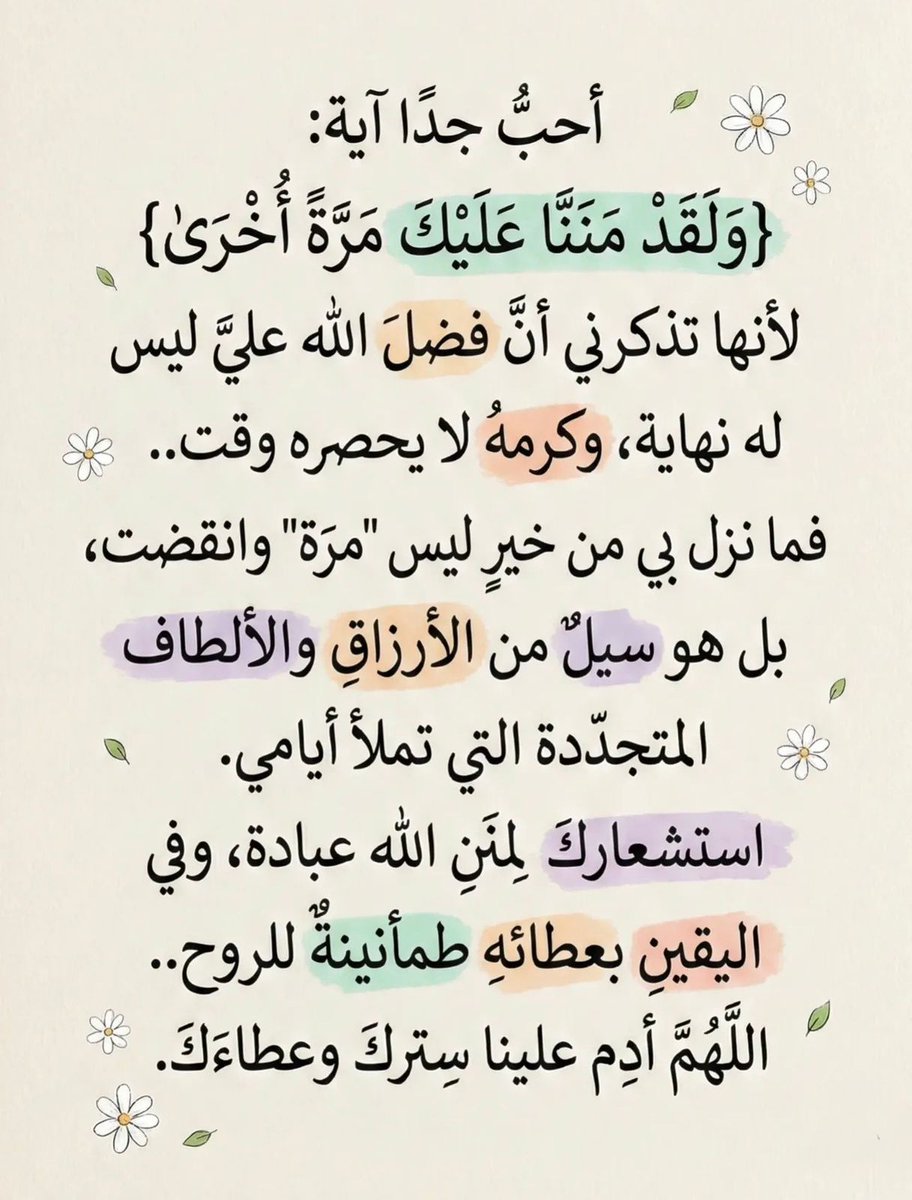 أحبُّ جدًا آية:
{وَلَقَدْ مَنَنَّا عَلَيْكَ مَرَّةً أُخْرَىٰ}
لأنها تذكرني أنَّ فضلَ الله عليَّ ليس
له نهاية، وكرمهُ لا يحصره وقت..
فما نزل بي من خيرٍ ليس "مرَة" وانقضت،
بل هو سيلٌ من الأرزاقِ والألطاف
المتجدّدة التي تملأ أيامي.
استشعاركَ لِمنَنِ الله عبادة، وفي
اليقينِ بعطائهِ طمأنينةٌ للروح..
اللَّهُمَّ أدِم علينا سِتركَ وعطاءَكَ.